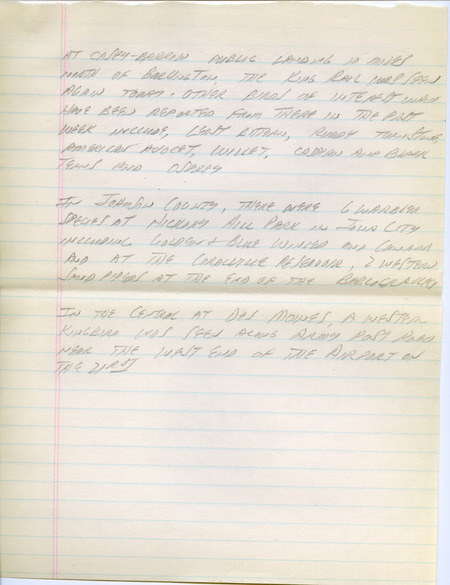 AT CASEY-BARROW PUBLIC LANDING 10 MILES
NORTH OF BURLINGTON, THE KING RAIL WAS SEEN
AGAIN TODAY. OTHER BIRDS OF INTEREST WHICH
HAVE BEEN REPORTED FROM THERE IN THE PAST
WEEK INCLUDE, LEAST BITTERN, RUDDY TURNSTONE,
AMERICAN AVOCET, WILLET, CASPIAN AND BLACK
TERNS AND OSPREY
IN JOHNSON COUNTY, THERE WERE 6 WARBLER
SPECIES AT HICKORY HILL PARK IN IOWA CITY
INCLUDING GOLDEN & BLUE WINGED AND CANADA
AND AT THE CORALVILLE RESERVOIR, 2 WESTERN
SANDPIPERS AT THE END OF THE
IN THE CENTRAL AT DES MOINES, A WESTERN
KINGBIRD WAS SEEN ALONG ARMY POST ROAD
NEAR THE WEST END OF THE AIRPORT ON
THE 21ST